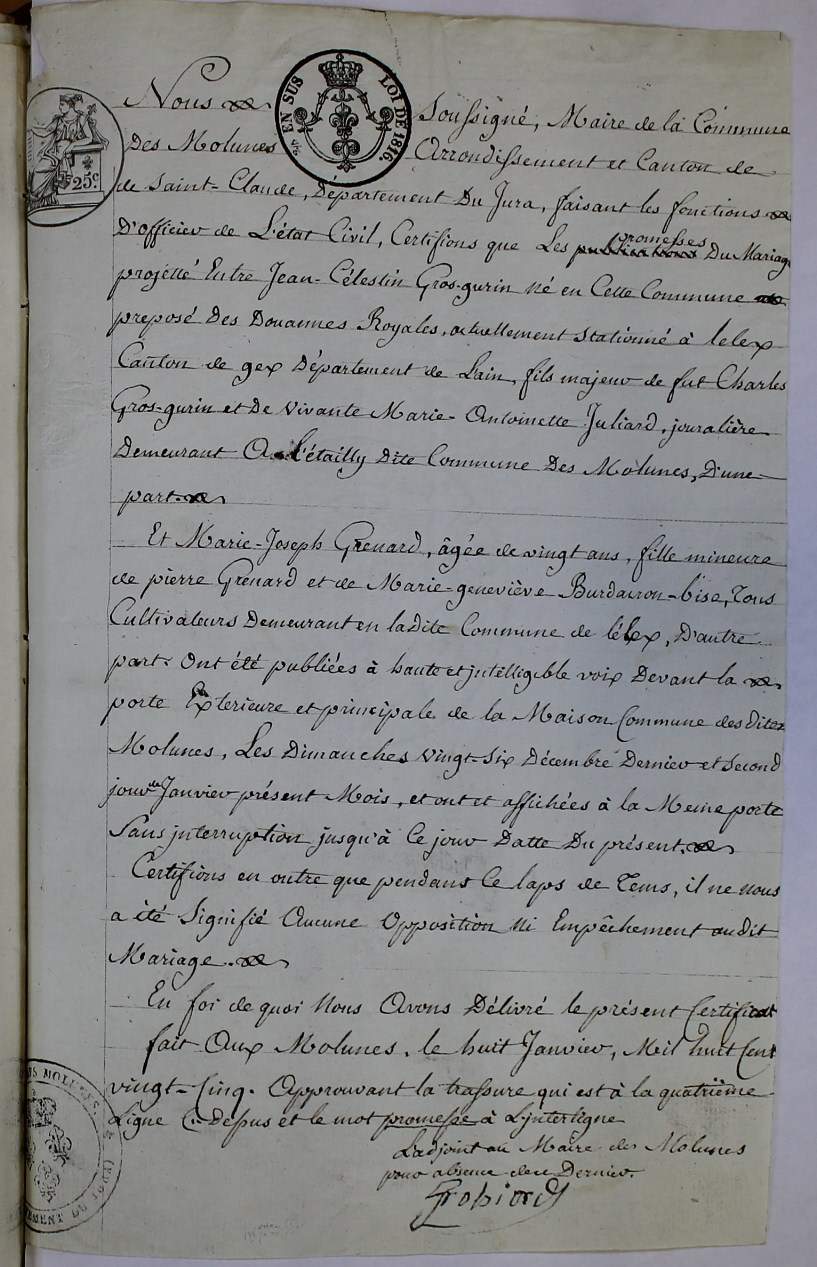 EN SUS
LOI DE 1816.
25c
Nous Soussigné, Maire de la Commune
Des Molunes Arrondissement et Canton de
de Saint-Claude, Département Du Jura, faisant les fonctions
D'officier de L'état Civil, Certifions que Les publications promesses Du Mariage
projetté Entre Jean-Célestin Gros-gurin né en Cette Commune
preposé Des Douannes Royales, actuellement stationné à lelex
Canton de gex Département de Lain, fils majeur de fut Charles
Gros-gurin et De vivante Marie-Antoinette Juliard, jouralière
Demeurant A l'étailly Dite Commune Des Molunes, D'une
part.
Et Marie-Joseph Grenard, âgée de vingt ans, fille mineure
de pierre Grenard et de Marie-geneviève Burdairon-bise, Tous
Cultivateurs Demeurant en ladite Commune de lélex, D'autre
part. Ont été publiées à haute et jntelligible voix Devant la
porte Exterieure et principale de la Maison Commune des Dites
Molunes, Les Dimanches vingt-six Décembre Dernier et Second
jour de Janvier présent Mois, et ont et affichées à la Meme porte
Sans jnterruption jusqu'à Ce jour Datte Du présent.
Certifions en outre que pendant Ce laps de Tems, il ne nous
a été Signifié Aucune Opposition ni Empêchement audit
Mariage.
En foi de quoi Nous Avons Délivré le présent Certificat
fait Aux Molunes, le huit Janvier, Mil huit Cent
vingt-Cinq. Approuvant la trassure qui est à la quatrième
Ligne Ci-Dessus et le mot promesse à L'jnterligne
L'adjoint au Maire des Molunes
pour absence de ce Dernier.
MOLUNES